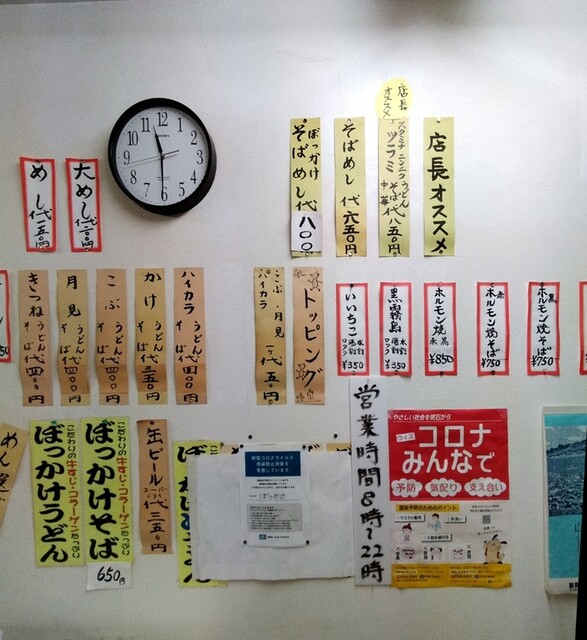 店長
オススメ
店長オススメ
スタミナニンニクうどん
ツラミ そば代八五〇円
中華
そばめし 代六五〇円
ぼっかけ
そばめし代八〇〇
大めし代二〇〇円
めし代一五〇円
ホルモン焼そば
¥750
ホルモン焼そば
¥750
ホルモン焼
¥850
黒霧島
水割
湯割
ロック
¥350
いいちこ
水割
湯割
ロック
¥350
トッピング
こぶ・月見
ハイカラ
一ケ代五〇円
ハイカラ うどん そば 代四〇〇円
かけ うどん そば 代三五〇円
こぶ うどん そば 代四〇〇円
月見 うどん そば 代四〇〇円
きつね うどん そば 代四〇〇円
営業時間8時〜22時
缶ビール
スーパードライ
代三五〇円
こだわりの牛すじ・コラーゲンたっぷり
ぼっかけそば
650円
こだわりの牛すじ・コラーゲンたっぷり
ぼっかけうどん
新型コロナウイルス
感染防止対策を
実施しています。
ぼっかけや
やさしい社会を明石から
ウィズ
コロナ
みんなで
予防
気配り
支え合い
感染予防のためのポイント
12
1
2
3
4
5
6
7
8
9
10
11